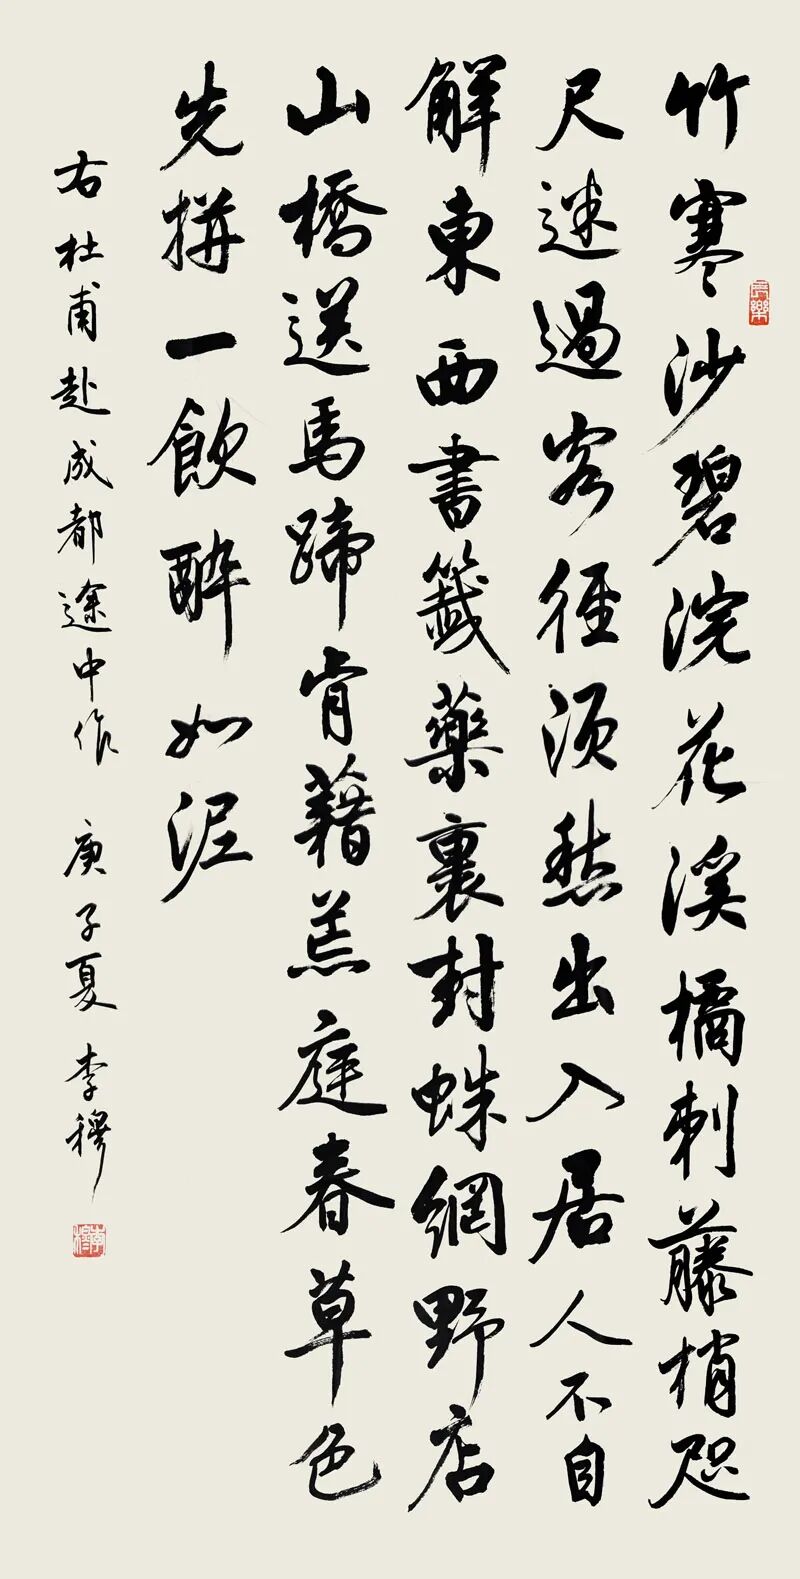 竹寒沙碧浣花溪橘刺藤梢咫
尺迷過客徑須愁出入居人不自
解東西書籤藥裹封蛛網野店
山橋送馬蹄肯藉荒庭春草色
先拼一飲醉如泥
右杜甫赴成都途中作 庚子夏 李穆
長樂